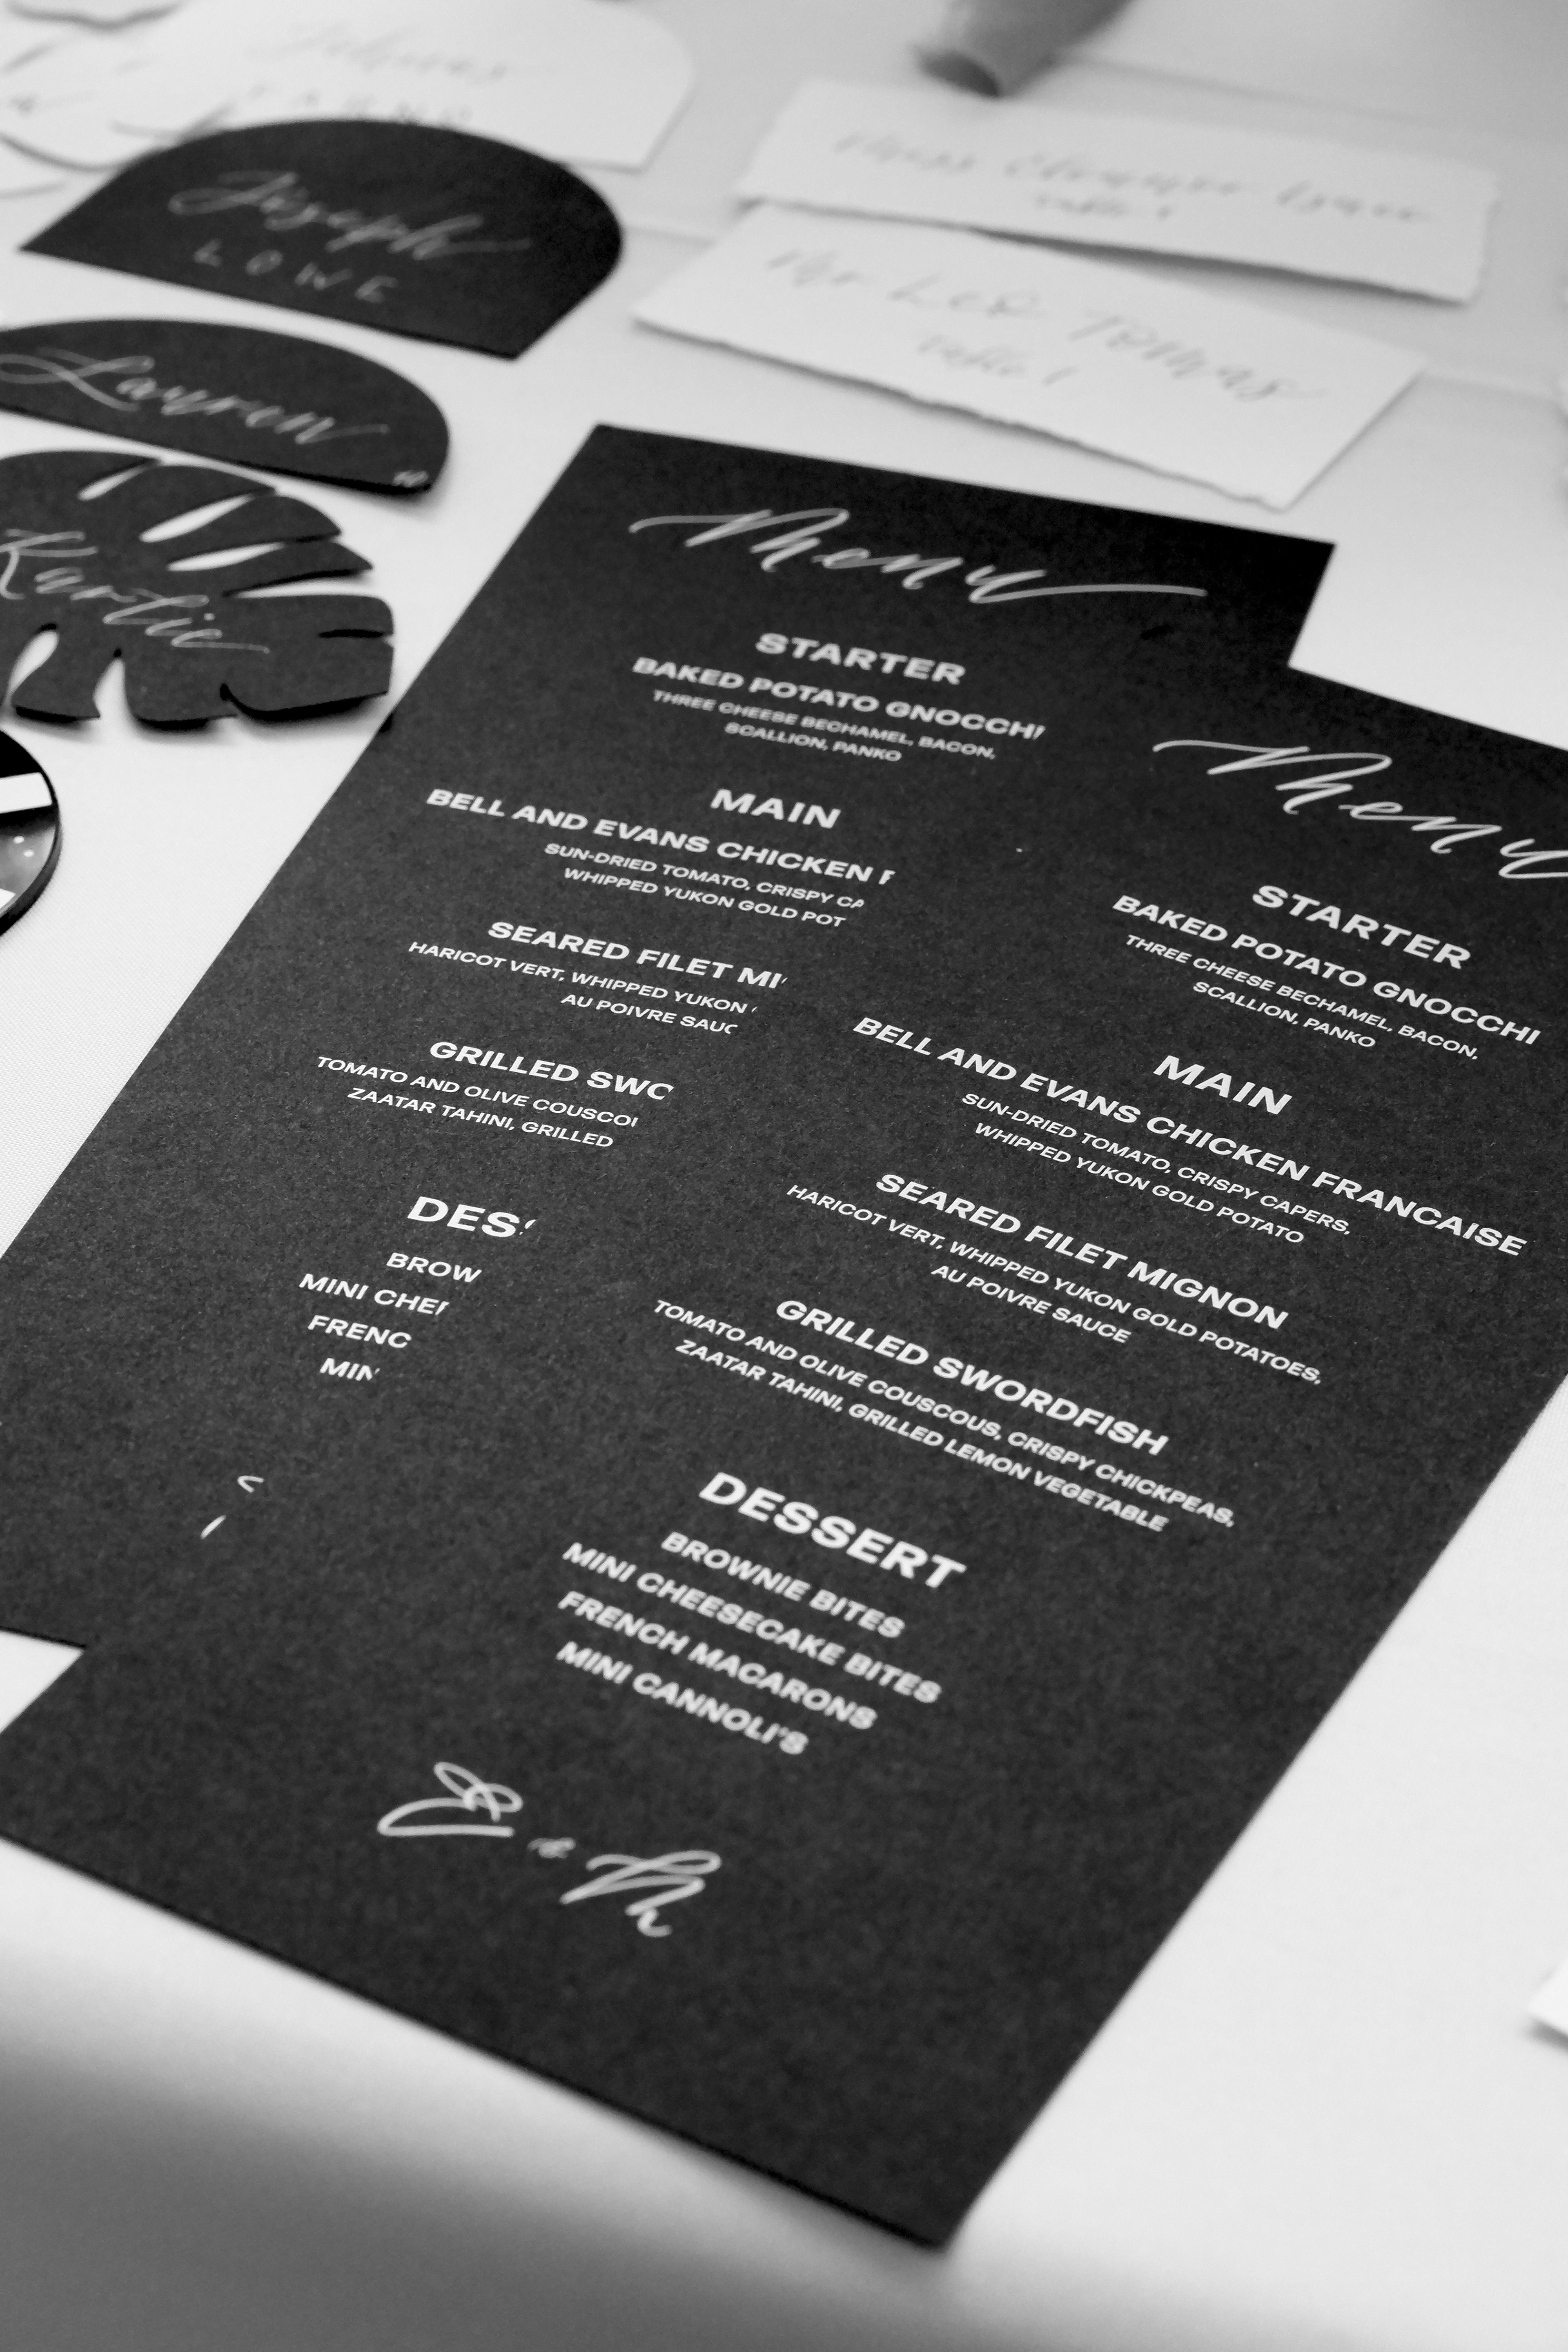 Joseph
LOWE
Lauren
Karlie
Mr Leo Tomas
Table 1
Table 1
Menu
STARTER
BAKED POTATO GNOCCHI
THREE CHEESE BECHAMEL, BACON,
SCALLION, PANKO
MAIN
BELL AND EVANS CHICKEN F
SUN-DRIED TOMATO, CRISPY CA
WHIPPED YUKON GOLD POT
SEARED FILET MI
HARICOT VERT, WHIPPED YUKON
AU POIVRE SAUC
GRILLED SWO
TOMATO AND OLIVE COUSCO
ZAATAR TAHINI, GRILLED
DESS
BROW
MINI CHE
FRENC
MIN
Menu
STARTER
BAKED POTATO GNOCCHI
THREE CHEESE BECHAMEL, BACON,
SCALLION, PANKO
MAIN
BELL AND EVANS CHICKEN FRANCAISE
SUN-DRIED TOMATO, CRISPY CAPERS,
WHIPPED YUKON GOLD POTATO
SEARED FILET MIGNON
HARICOT VERT, WHIPPED YUKON GOLD POTATOES,
AU POIVRE SAUCE
GRILLED SWORDFISH
TOMATO AND OLIVE COUSCOUS, CRISPY CHICKPEAS,
ZAATAR TAHINI, GRILLED LEMON VEGETABLE
DESSERT
BROWNIE BITES
MINI CHEESECAKE BITES
FRENCH MACARONS
MINI CANNOLI'S
E & M